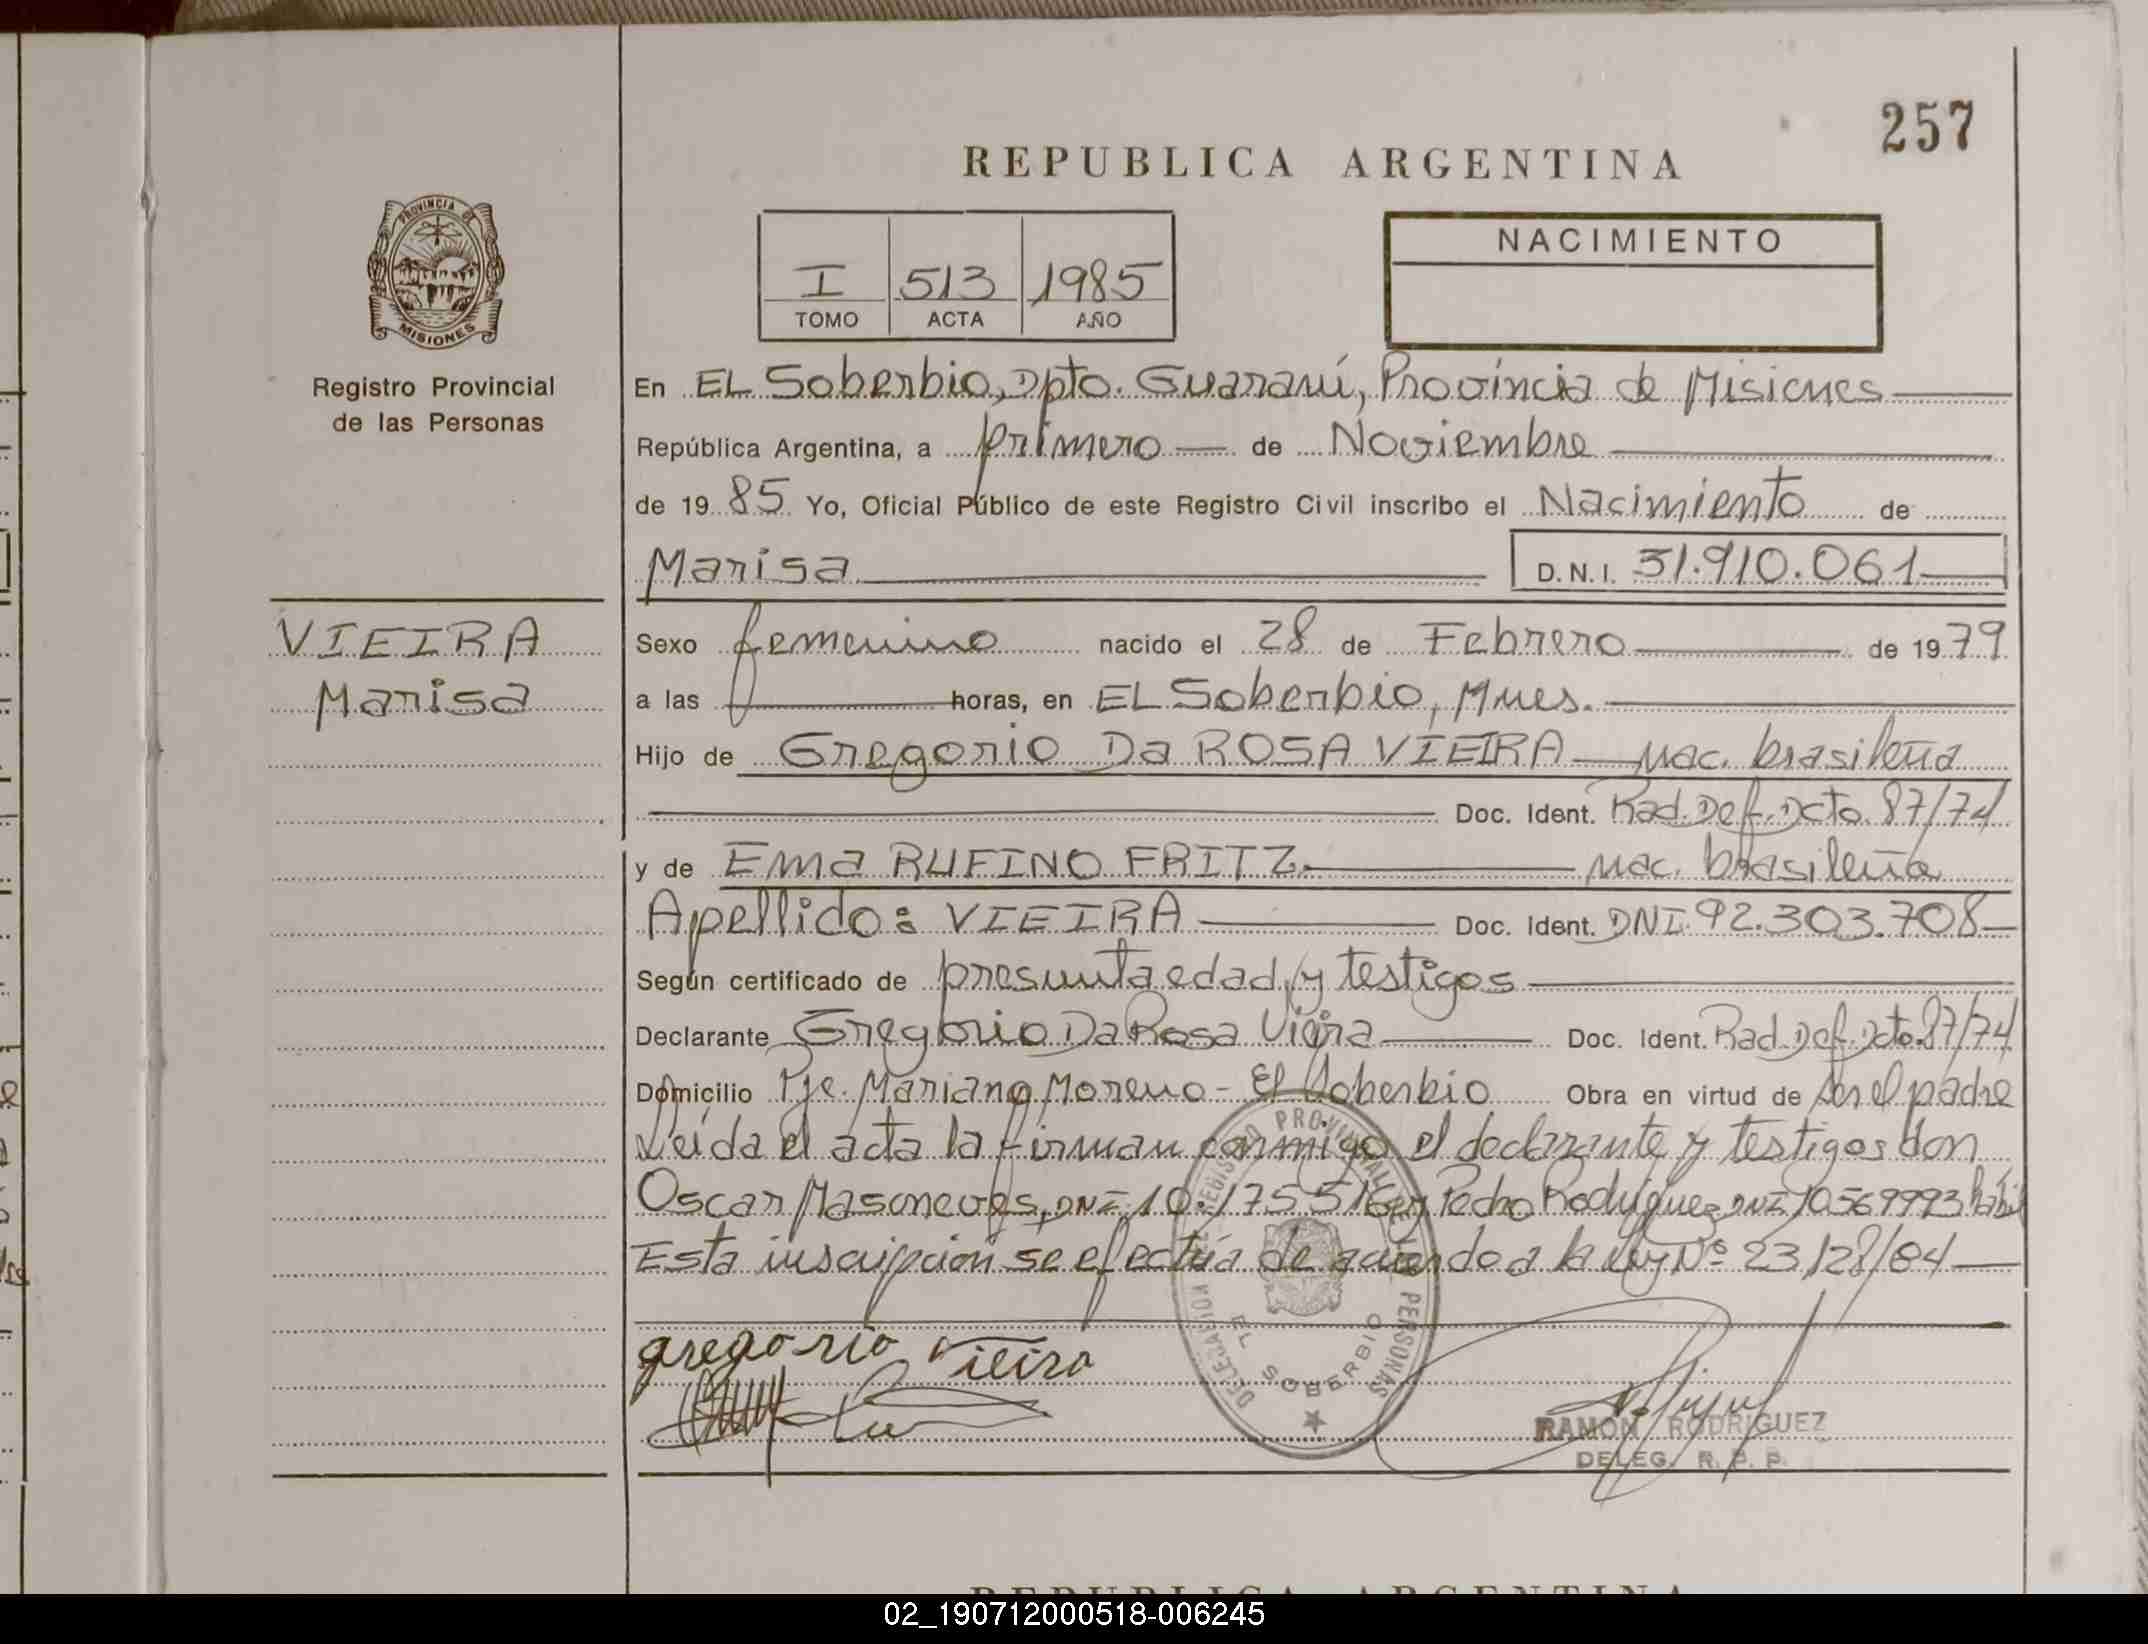 257
REPUBLICA ARGENTINA
PROVINCIA DE
MISIONES
Registro Provincial
de las Personas
I 513 1985
TOMO ACTA AÑO
NACIMIENTO
En EL Soberbio, Dpto. Guaraní, Provincia de Misiones
República Argentina, a primero de Noviembre
de 19 85 Yo, Oficial Público de este Registro Civil inscribo el Nacimiento de
Marisa D.N.I. 31.910.061
VIEIRA
Marisa
Sexo femenino nacido el 28 de Febrero de 19 79
a las horas, en EL Soberbio, Mnes.
Hijo de Gregorio Da ROSA VIEIRA nac. brasileña
Doc. Ident. Rad. Def. Dcto. 87/74
y de Ema RUFINO FRITZ. nac. brasileña
Apellido: VIEIRA Doc. Ident. DNI 92.303.708
Según certificado de presunta edad, y testigos
Declarante Gregorio Da Rosa Vieira Doc. Ident. Rad. Def. Dcto. 87/74
Domicilio Pje. Mariano Moreno - El Soberbio Obra en virtud de ser el padre
Leída el acta la firman conmigo el declarante y testigos don
Oscar DNI 10.175.516 y Pedro Rodriguez DNI 10569993 hábil
Esta inscripción se efectúa de acuerdo a la ley Nº 23128/84
gregorio Vieira
DELEGACION REGISTRO PROVINCIAL DE LAS PERSONAS
EL SOBERBIO
RAMON RODRIGUEZ
DELEG. R. P. P.
REPUBLICA ARGENTINA
02_190712000518-006245